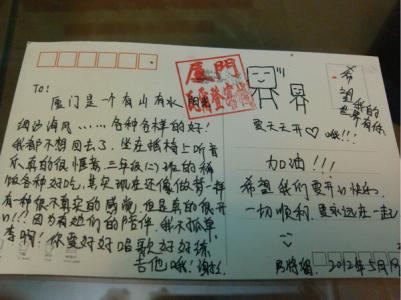 To:
厦门是一个有山有水 阳光
细沙海风……各种各样的好!
我都不想回去了. 坐在 上听音
乐真的很惬意 三年级(二)班的稀
饭各种好吃, 其实现在还像做梦一样
有种很不真实的感觉 但是真的很开
心!!! 因为有她们的陪伴, 我不孤单
你要好好唱歌好好练
吉他哦! 谢
厦門
希望我的
世界有你
要天天开♡ 哦!!!
加油!!!
希望我们要开心快乐
一切顺利 要永远在一起
2012年5月